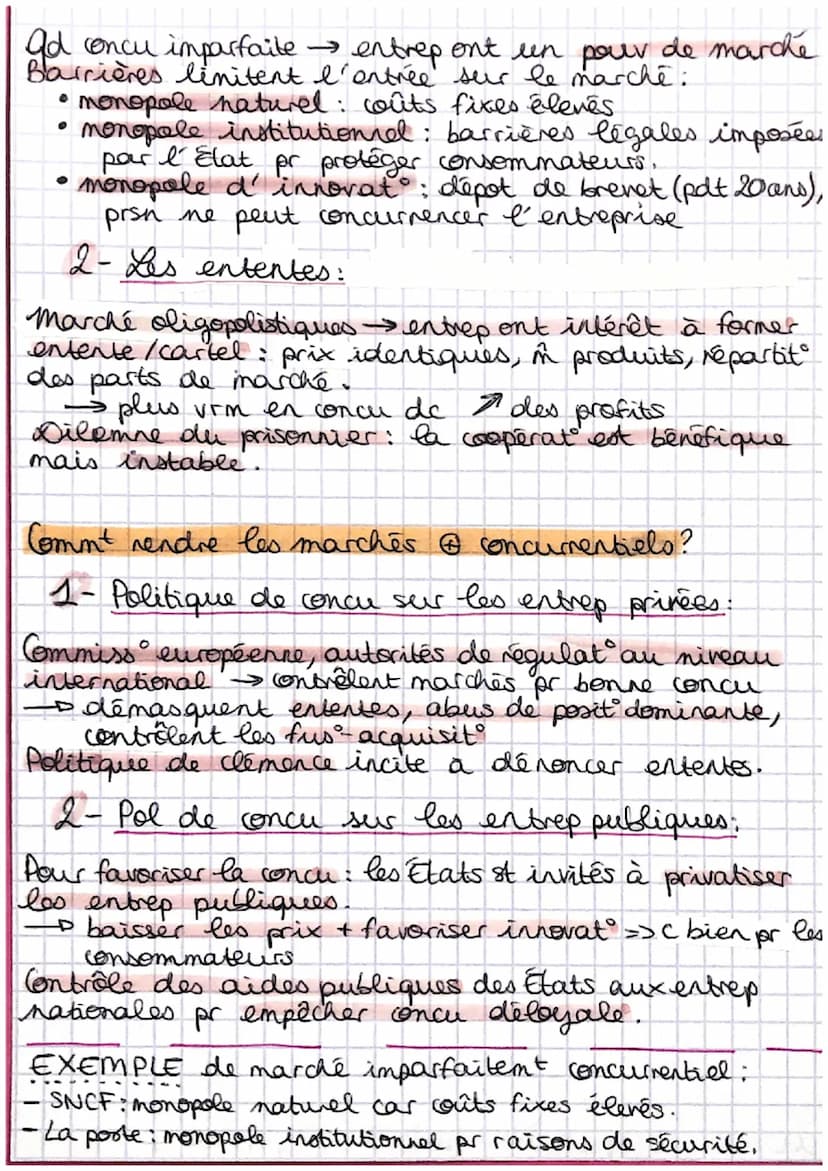 Qd concu imparfaite → entrep ont un pouv de marché
Barrières limitent l'entrée sur le marché :
• monopole naturel : coûts fixes élevés
• monopole institutionnel : barrières légales imposées
par l'État pr protéger consommateurs.
• monopole d'innovat° : dépot de brevet (pdt 20 ans),
prsn ne peut concurrencer l'entreprise
2- Les ententes :
Marché oligopolistiques → entrep ont intérêt à former
entente/cartel : prix identiques, m̂ produits, répartit°
des parts de marché.
→ plus vrm en concu dc ↗ des profits
Dilemne du prisonnier : la coopérat° est bénéfique
mais instable.
Commt rendre les marchés ⊕ concurrentiels ?
1- Politique de concu sur les entrep privées :
Commiss° européenne, autorités de régulat° au niveau
international → contrôlent marchés pr bonne concu
→ démasquent ententes, abus de posit° dominante,
contrôlent les fus°-acquisit°
Politique de clémence incite a dénoncer ententes.
2- Pol de concu sur les entrep publiques :
Pour favoriser la concu : les États st invités à privatiser
les entrep publiques.
→ baisser les prix + favoriser innovat° => c bien pr les
consommateurs
Contrôle des aides publiques des États aux entrep
nationales pr empêcher concu déloyale.
EXEMPLE de marché imparfaitemt concurrentiel :
- SNCF : monopole naturel car coûts fixes élevés.
- La poste : monopole institutionnel pr raisons de sécurité.